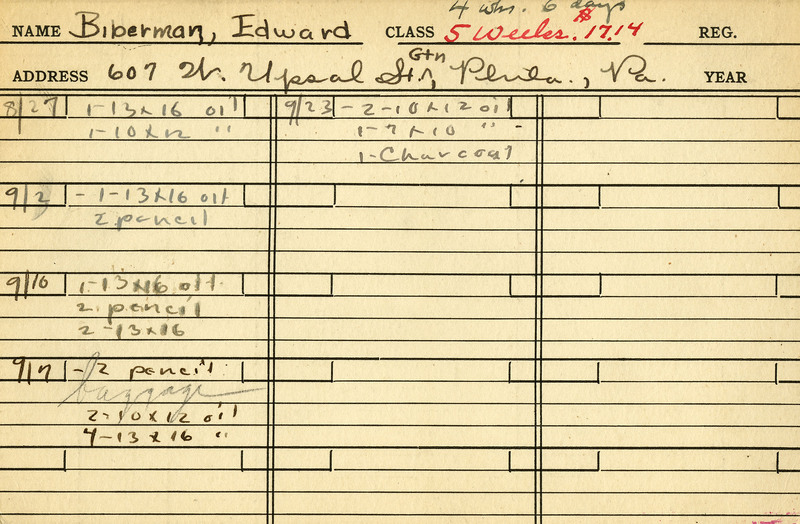 4 wks. 6 days
NAME Biberman, Edward CLASS 5 Weeks. 17.14 REG.
Gtn
ADDRESS 607 W. Upsal St., Phila., Pa. YEAR
8/27 1-13x16 oil 9/23 - 2-10x12 oil
1-10x12 " 1-7x10 " -
1-Charcoal
9/2 - 1-13x16 oil
2 pencil
9/16 1-13x16 oil
2 pencil
2-13x16
9/17 - 2 pencil
baggage
2-10x12 oil
4-13x16 "